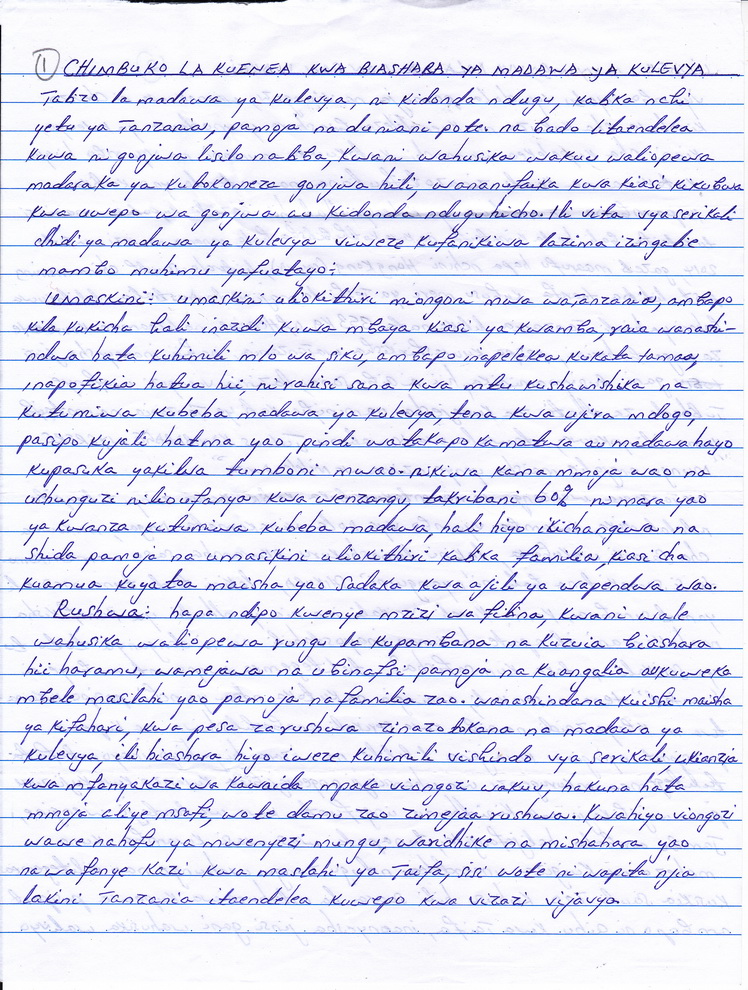 1 CHIMBUKO LA KUENEA KWA BIASHARA YA MADAWA YA KULEVYA
Tatizo la madawa ya kulevya, ni kidonda ndugu, katika nchi
yetu ya Tanzania, pamoja na duniani pote. na bado litaendelea
kuwa ni gonjwa lisilo na tiba, kwani wahusika wakuu waliopewa
madaraka ya kutokomeza gonjwa hili, wananufaika kwa kiasi kikubwa
kwa uwepo wa gonjwa au kidonda ndugu hicho. Ili vita vya serikali
dhidi ya madawa ya kulevya viweze kufanikiwa lazima izingatie
mambo muhimu yafuatayo:
Umaskini: umaskini uliokithiri miongoni mwa watanzania, ambapo
kila kukicha hali inazidi kuwa mbaya kiasi ya kwamba, raia wanashi-
ndwa hata kuhimili mlo wa siku, ambapo inapelekea kukata tamaa,
inapofikia hatua hii, ni rahisi sana kwa mtu kushawishika na
kutumiwa kubeba madawa ya kulevya, tena kwa ujira mdogo,
pasipo kujali hatma yao pindi watakapokamatwa au madawa hayo
kupasuka yakiwa tumboni mwao. nikiwa kama mmoja wao na
uchunguzi nilioufanya kwa wenzangu, takribani 60% ni mara yao
ya kwanza kutumiwa kubeba madawa, hali hiyo ikichangiwa na
shida pamoja na umasikini uliokithiri katika familia, kiasi cha
kuamua kuyatoa maisha yao sadaka kwa ajili ya wapendwa wao.
Rushwa: hapa ndipo kwenye mzizi wa fitina, kwani wale
wahusika waliopewa rungu la kupambana na kuzuia biashara
hii haramu, wamejawa na ubinafsi pamoja na kuangalia au kuweka
mbele masilahi yao pamoja na familia zao. wanashindana kuishi maisha
ya kifahari, kwa pesa za rushwa zinazotokana na madawa ya
kulevya, ili biashara hiyo iweze kuhimili vishindo vya serikali, ukianzia
kwa mfanyakazi wa kawaida mpaka viongozi wakuu, hakuna hata
mmoja aliye msafi, wote damu zao zimejaa rushwa. Kwahiyo viongozi
wawe na hofu ya mwenyezi mungu, waridhike na mishahara yao
na wafanye kazi kwa maslahi ya Taifa, sisi wote ni wapita njia
lakini Tanzania itaendelea kuwepo kwa vizazi vijavyo.